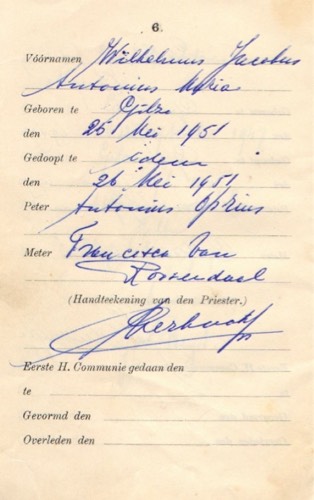 6.
Vóórnamen Wilhelmus Jacobus
Antonius Maria
Geboren te Gilze
den 25 Mei 1951
Gedoopt te idem
den 26 Mei 1951
Peter Antonius Oprins
Meter Francisca van
Roosendaal
(Handteekening van den Priester.)
Eerste H. Communie gedaan den
te
Gevormd den
Overleden den